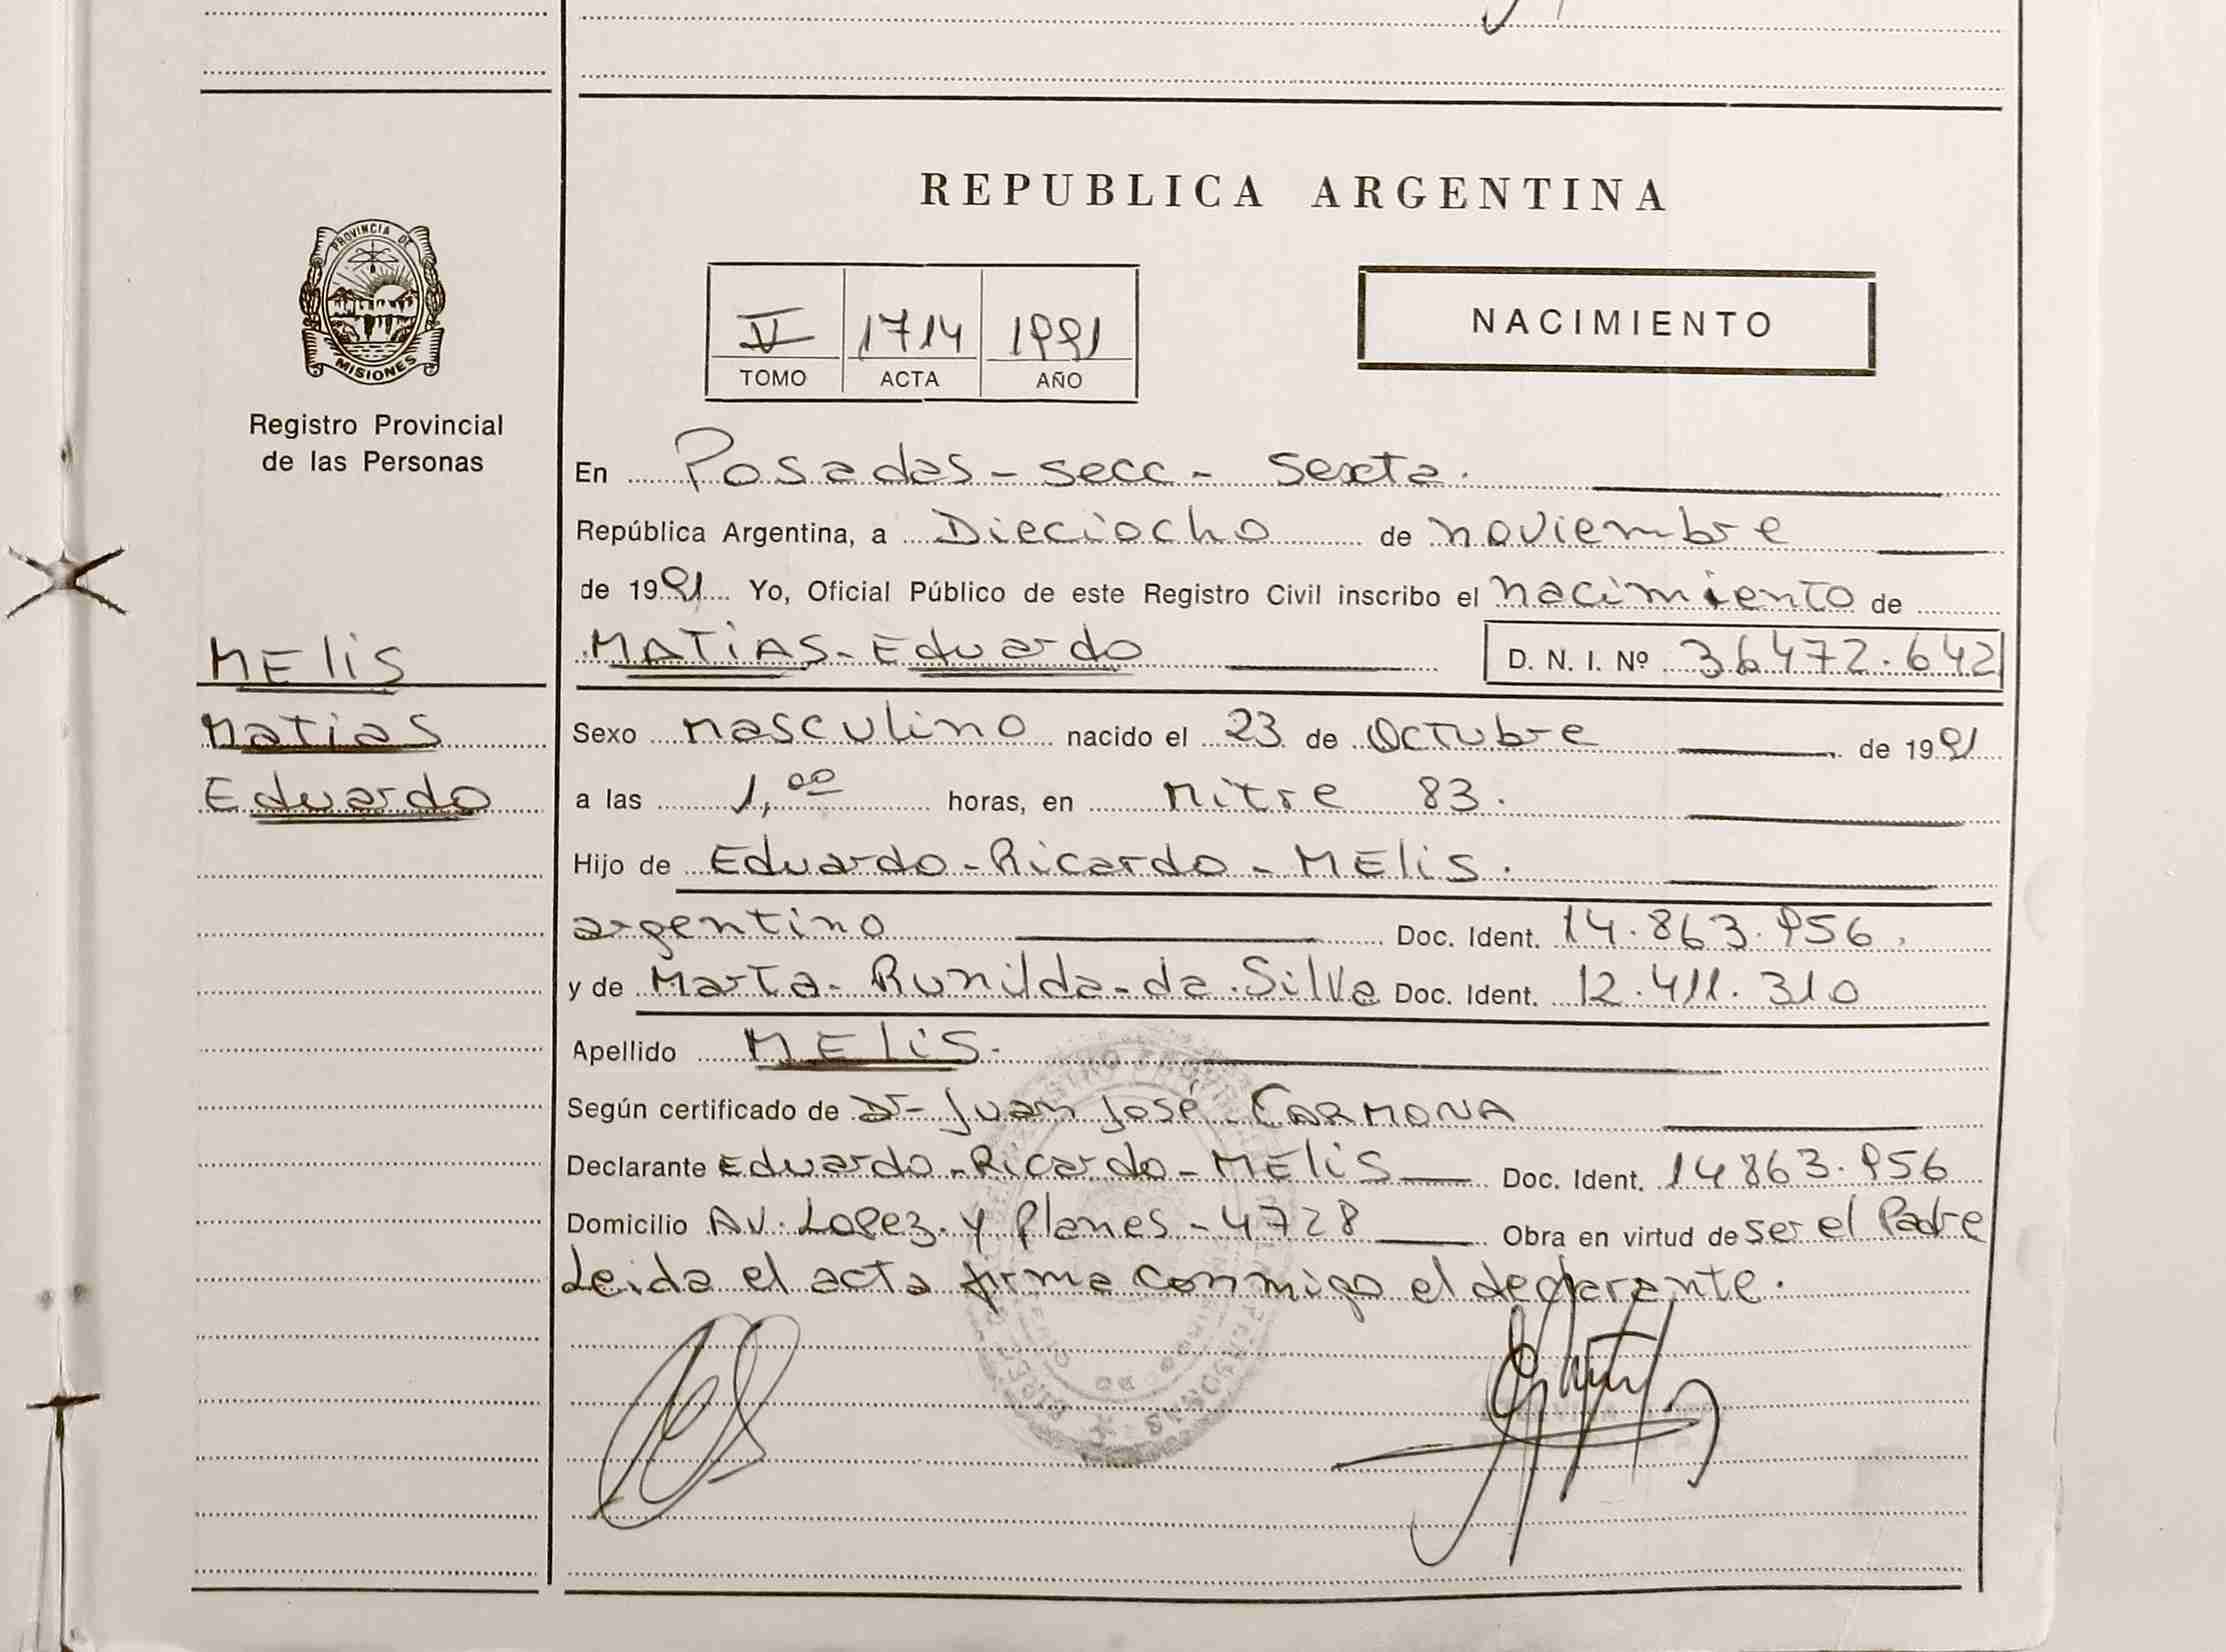 REPUBLICA ARGENTINA
PROVINCIA DE
MISIONES
Registro Provincial
de las Personas
V 1714 1991
TOMO ACTA AÑO
NACIMIENTO
En Posadas - secc - Sexta.
República Argentina, a Dieciocho de noviembre
de 1991 Yo, Oficial Público de este Registro Civil inscribo el nacimiento de
MATIAS - Eduardo D. N. I. Nº 36472.642
MELIS
Matias
Eduardo
Sexo masculino nacido el 23 de Octubre de 1991
a las 1,00 horas, en Mitre 83.
Hijo de Eduardo - Ricardo - MELIS.
argentino Doc. Ident. 14.863.956.
y de Marta - Runilda - da Silva Doc. Ident. 12.411.310
Apellido MELIS.
Según certificado de Dr - Juan José - CARMONA
Declarante Eduardo - Ricardo - MELIS Doc. Ident. 14863.956
Domicilio AV. Lopez y Planes - 4728 Obra en virtud de ser el Padre
Leida el acta firma conmigo el declarante.